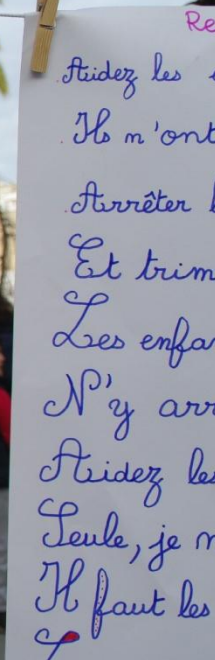 Re
Aidez les
Ils n'ont
Arrêter
Et trim
Les enfa
N'y arr
Aidez les
Seule, je
Il faut les